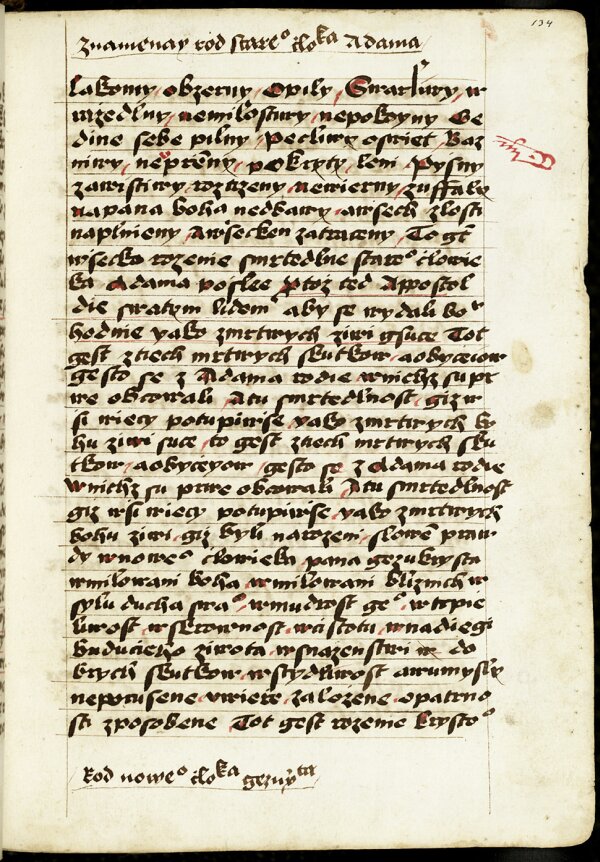 134
znamenay rod stareº čloka Adama
lakomy obzerny Opily Swarliwy w
nemilostiwy nepokoyny Ge
dine sebe pilny Pecliwy oswiet Baz
niwy pokryty leni Pyssny
zawistiwy rozzeny newierny zuffaly
napana boha nedbawy awsech zlosti
naplnieny Awsecken zatraceny To gt
wsecko rozenie smrtedlne stareº člowie
ka Adama posslee ptoz ted Appostol
die swatym lidem aby se wydali boº
hodnie yako zmrtwych ziwi gsuce Tot
gest ztiech mrtwych skutkow aobyceiow
gesto se z Adama rodie wnichz su prw
we obcowali Atu smrtedlnost giz w
si wieci potupiwse yako zmrtwych bo
hu ziwi suce to gest ztiech mrtwych sku
tkow aobyceyow gesto se z Adama rodie
wnichz su prwe obcowali Atu smrtedlnost
giz wsi wieci potupiwse yako zmrtwych
bohu ziwi giz byli narozeni slowem praw
dy wnoweº clowieka pana gezukrysta
wmilowani boha wmilowani bliznich w
sylu ducha swaº wmudrost geº wtrpie
liwost wskrownost wcistotu wnadiegi
buduciého ziwota wsnazenstwi w do
brych skutkow wstydliwost awumysly
neporusene uwiere zalozene opatrno
sti zposobene Tot gest rozenie krystoº
Rod noweº čloka gezukrysta